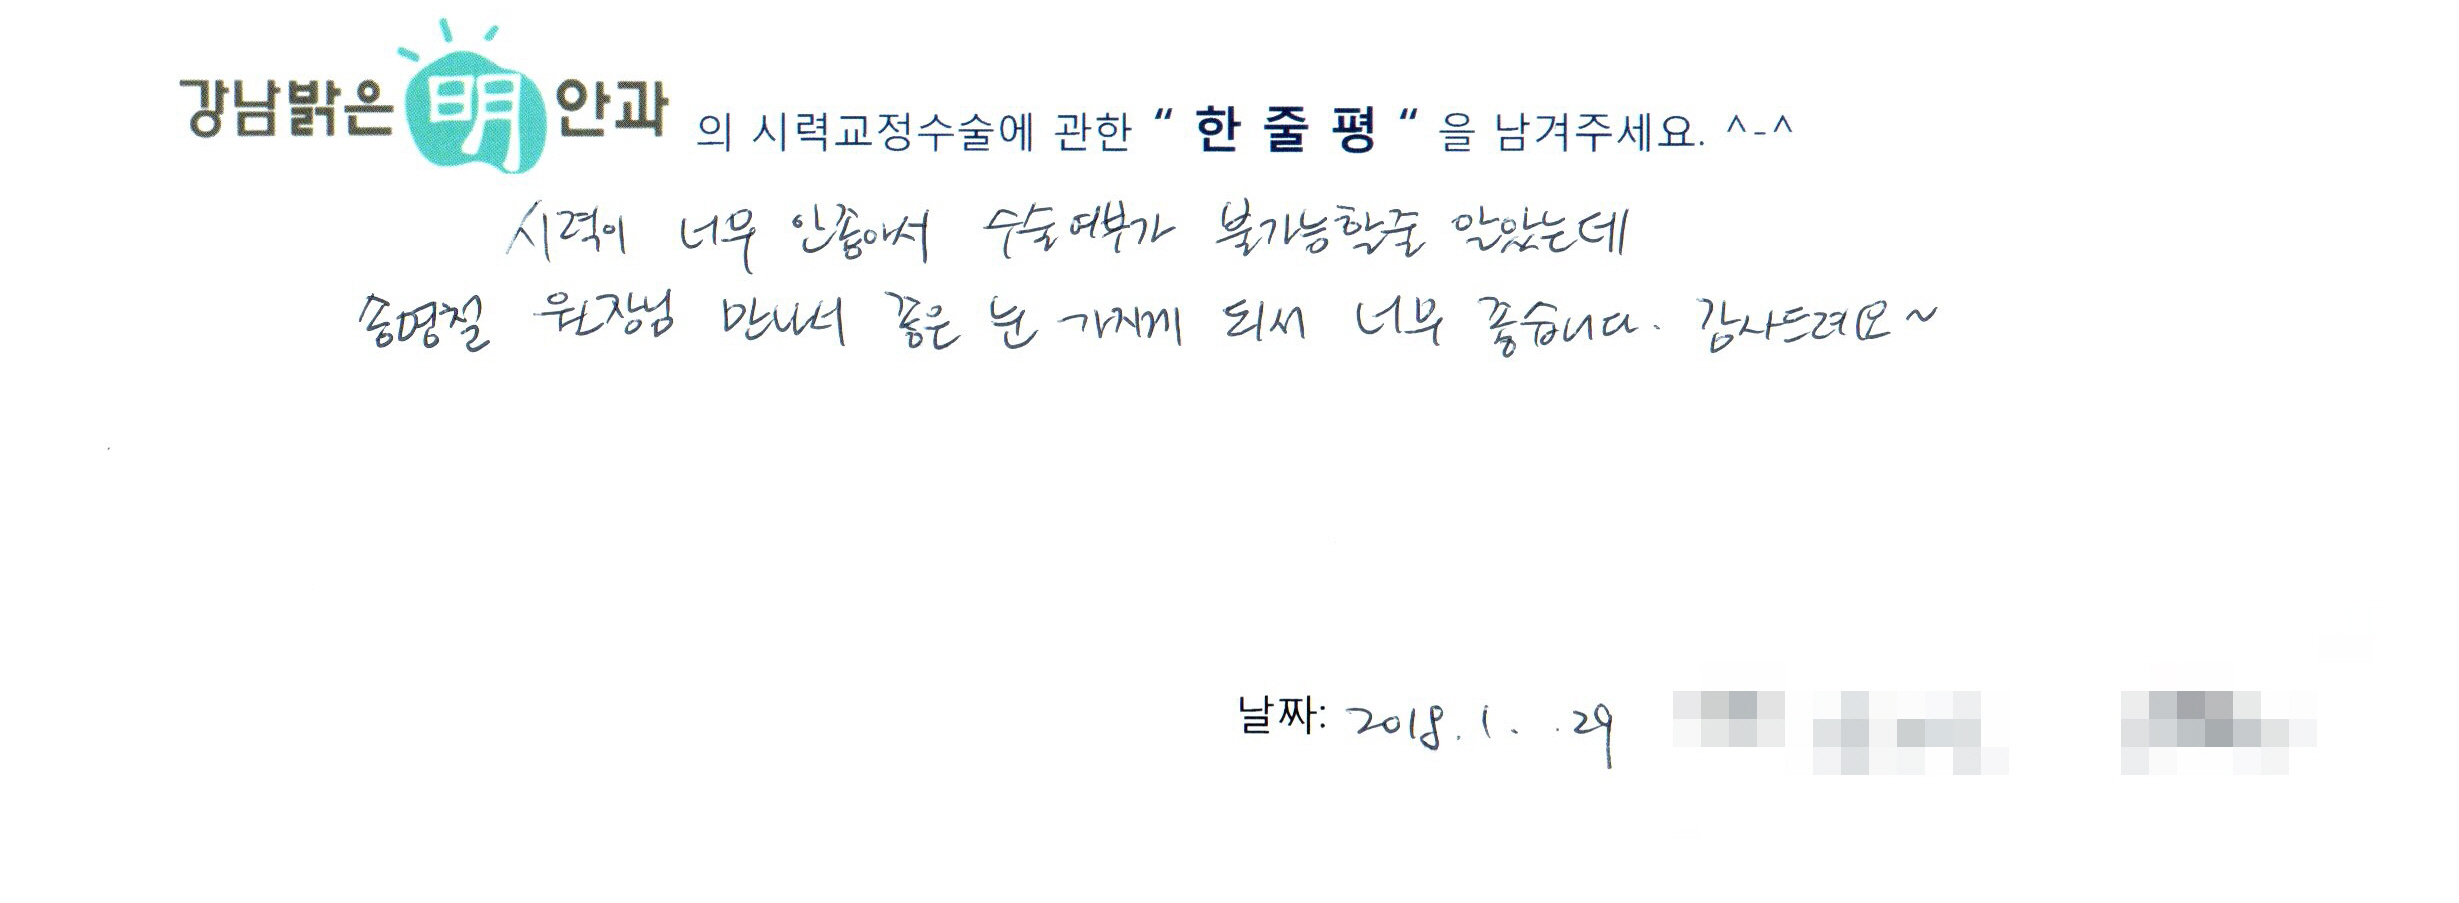 강남밝은 明 안과 의 시력교정수술에 관한 “ 한 줄 평 “ 을 남겨주세요. ^-^
시력이 너무 안좋아서 수술여부가 불가능할줄 알았는데
송명철 원장님 만나서 좋은 눈 가지게 되서 너무 좋습니다. 감사드려요~
날짜: 2018. 1. . 29